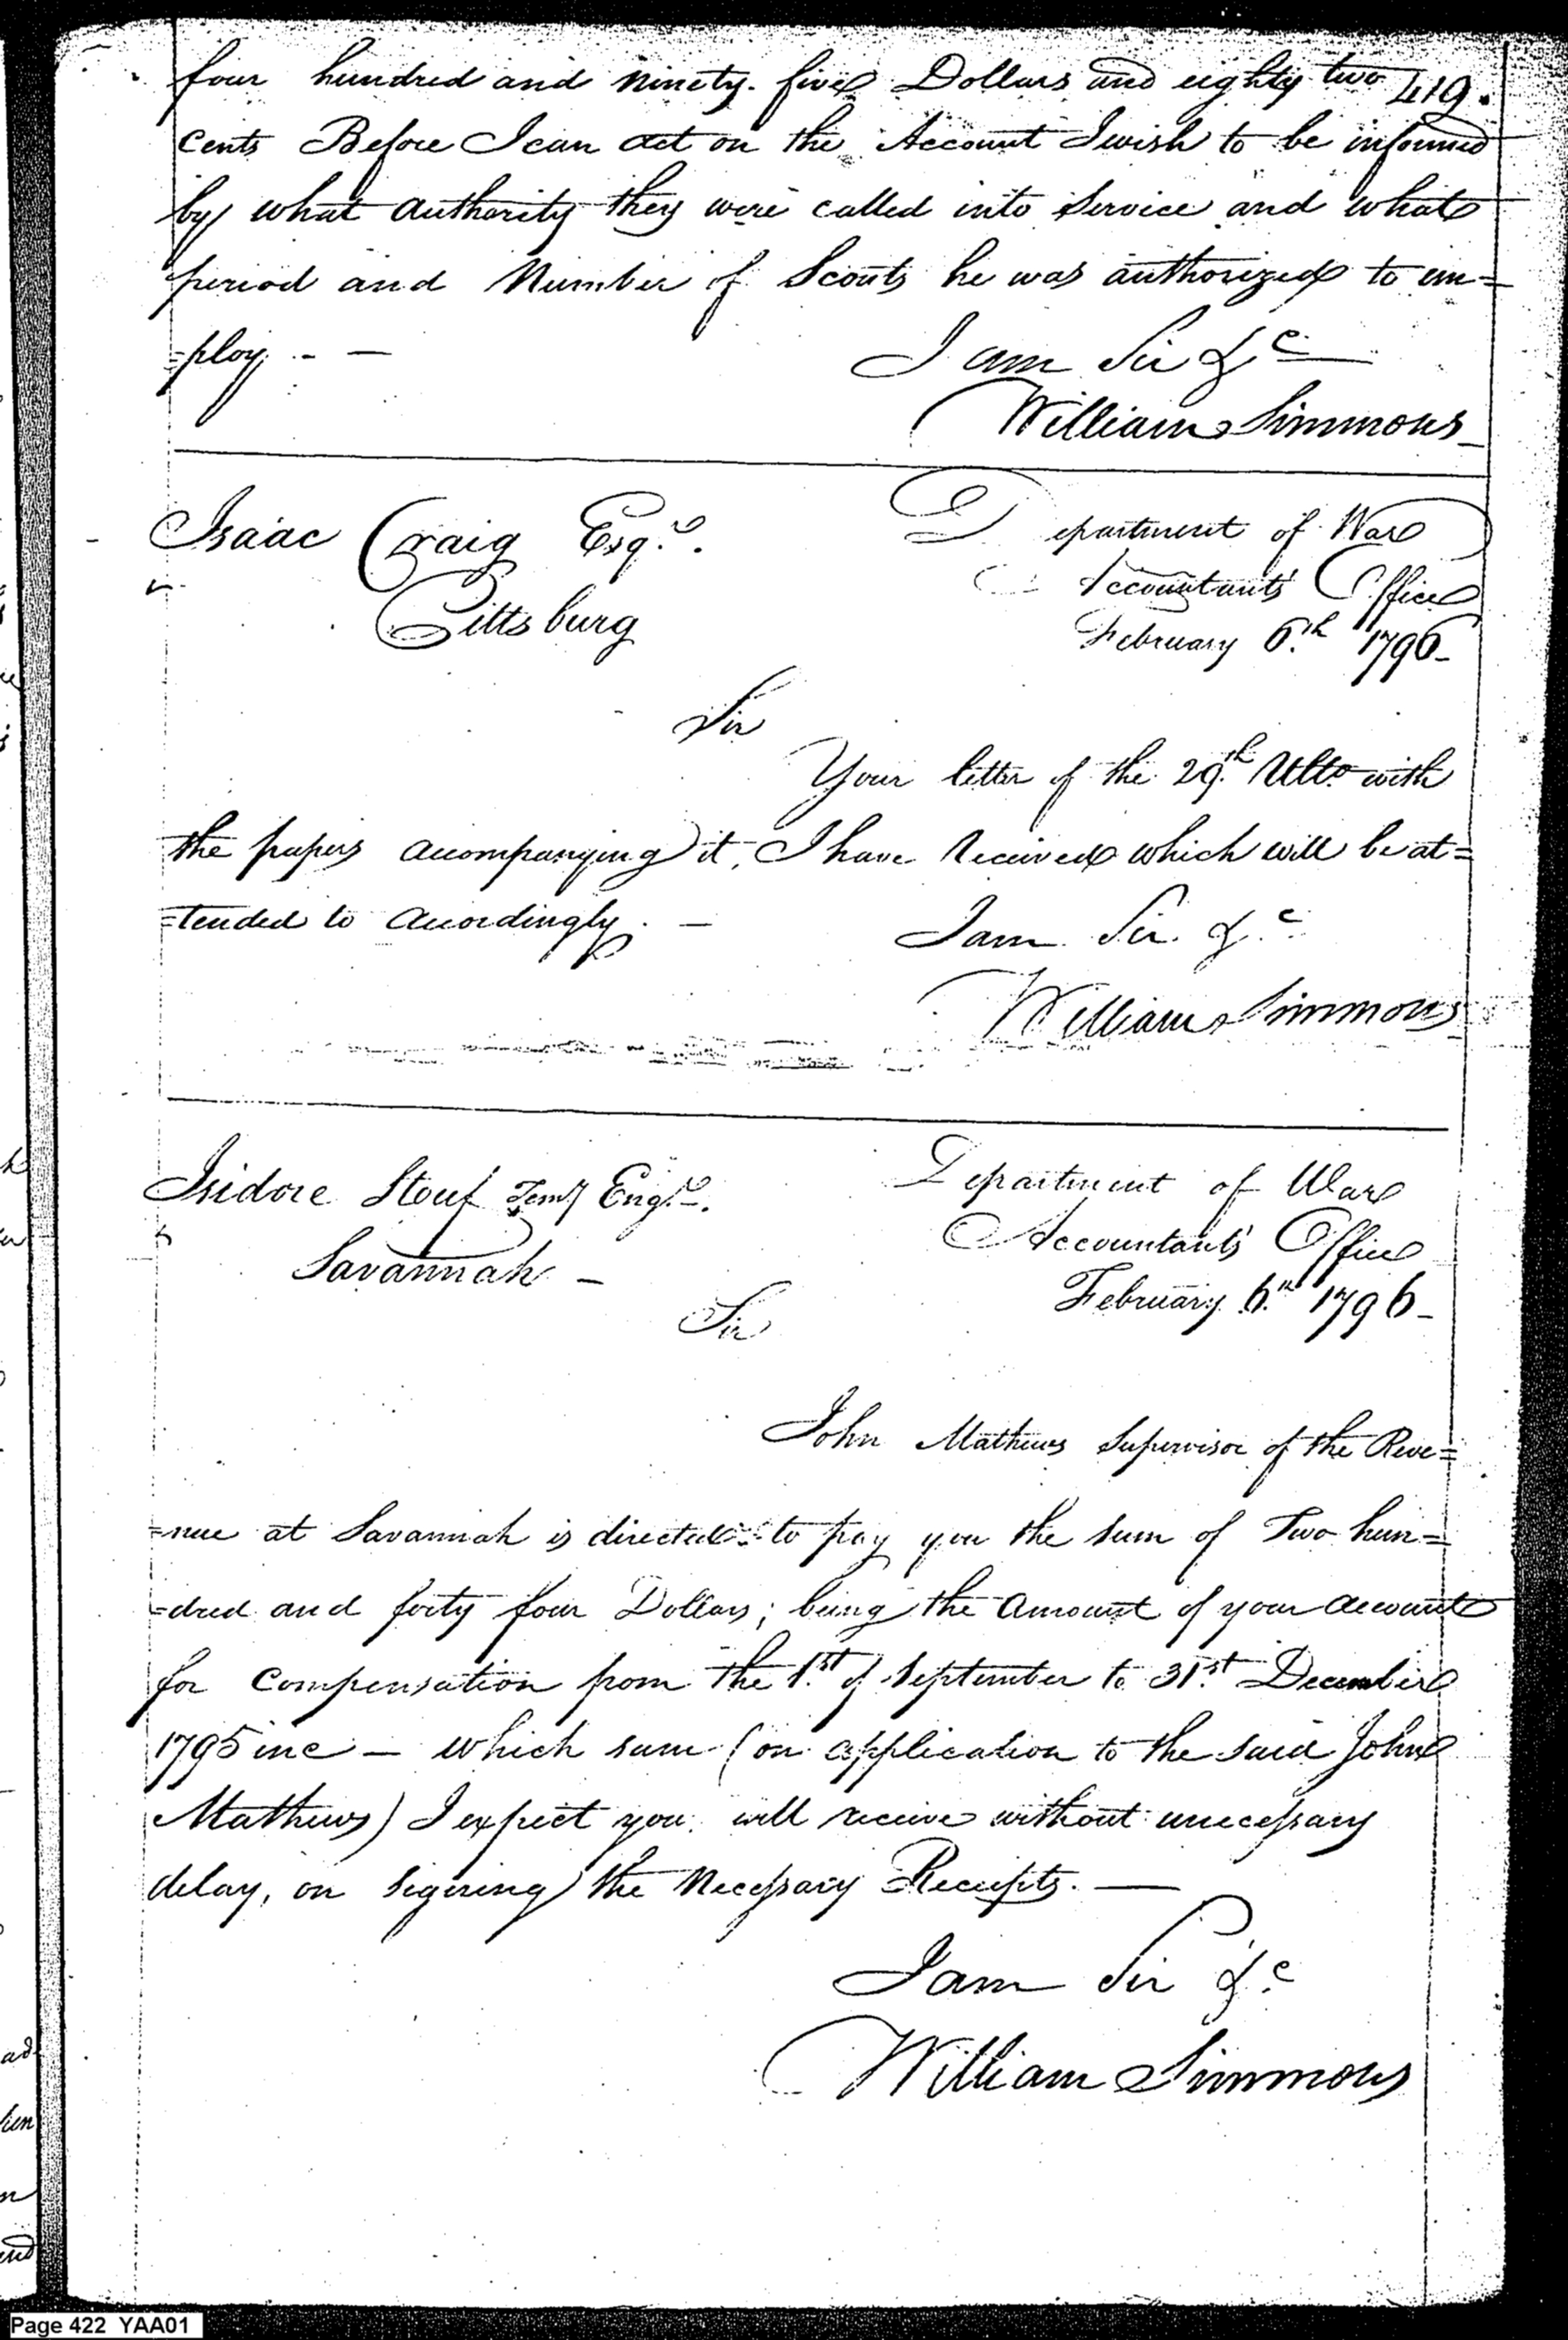 419.
four hundred and ninety. five Dollars and eighty two
cents Before I can act on the Account I wish to be informed
by what authority they were called into Service and what
period and Number of Scouts he was authorized to em=
=ploy. - —
I am Sir &c
William Simmons
Isaac Craig Esqr.
Pittsburg
Department of War
Accountants Office
February 6th 1796-
Sir
Your letter of the 29th Ulto with
the papers accompanying it, I have Received which will be at=
=tended to accordingly. —
I am Sir &c
William Simmons
Isidore Stouf Temy Engr.
Savannah -
Department of War
Accountants Office
February 6th 1796-
Sir
John Mathews Supervisor of the Reve=
=nue at Savannah is directed to pay you the sum of Two hun=
=dred and forty four Dollars; being the Amount of your account
for Compensation from the 1st of September to 31st December
1795 inc — which sum (on application to the said John
Mathews) I expect you will receive without unecessary
delay, on signing the Necessary Receipts. —
I am Sir &c
William Simmons
Page 422 YAA01